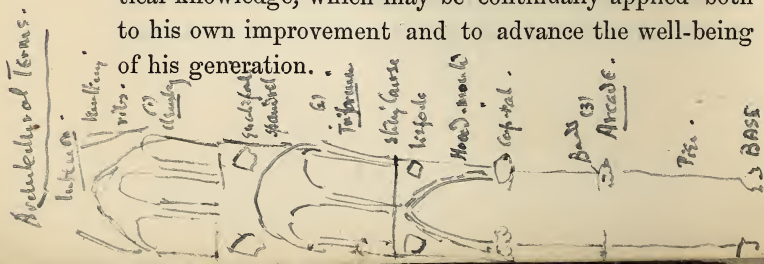 tical knowledge, which may be continually applied both
to his own improvement and to advance the well-being
of his generation.
Architectural Terms.
Interior.
Vaulting
ribs.
(1)
Clerestory
Spandrel
(2)
Triforium
String Course
Hood-mould
Capital.
Band
(3)
Arcade.
Pier.
BASE